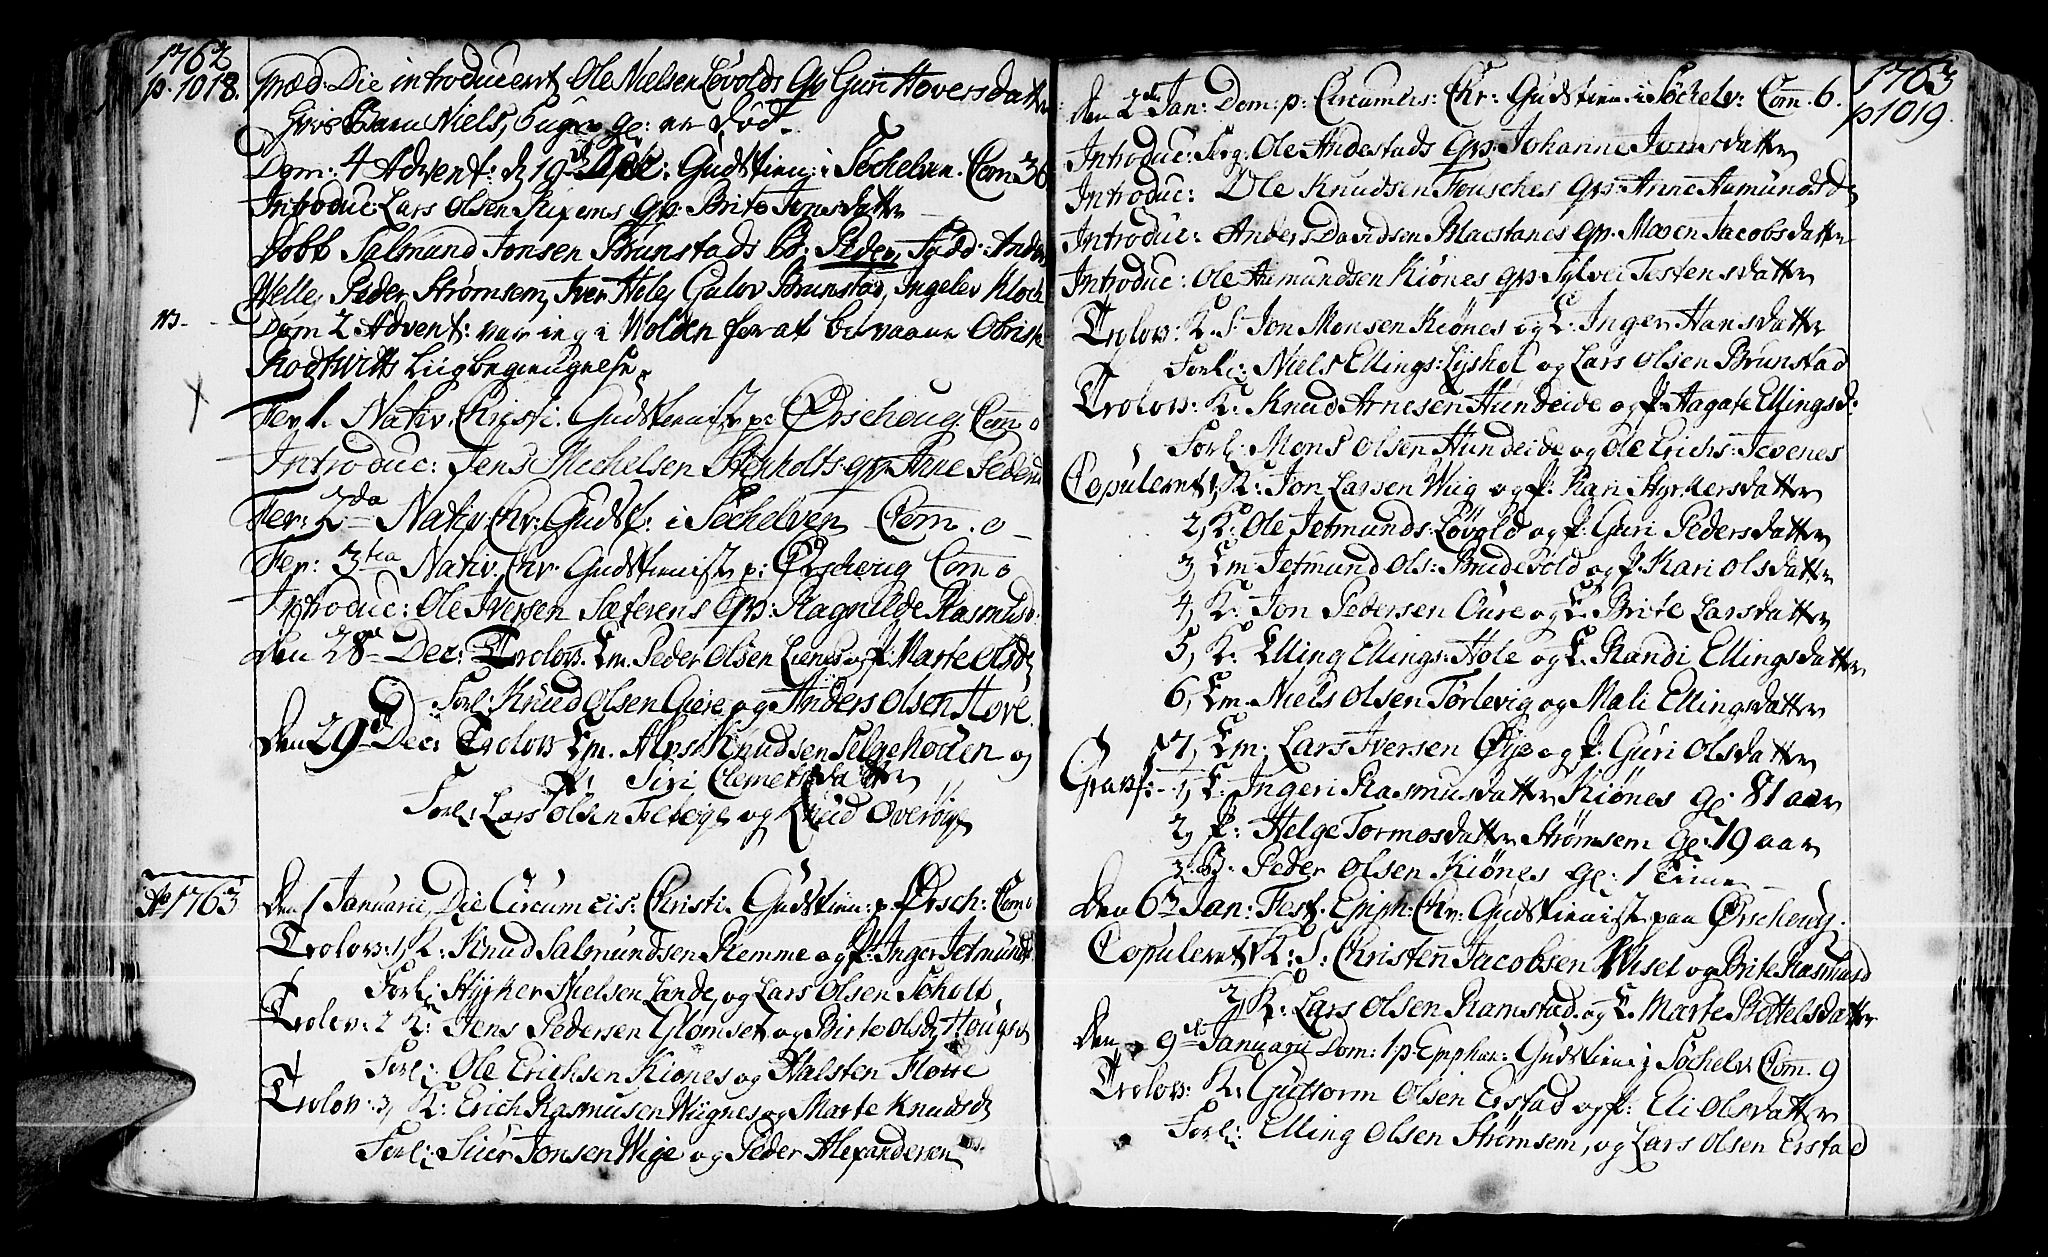 1762
p. 1018.
Præd: Die introduceret Ole Nielsen Løvolds Qv: Guri Hovers datter
hvis Barn Niels, 6 uger gl: er død.
Dom: 4 Advent: d 19de Dec: Gudstien: i Søchelven. Com 36
Introduc: Lars Olsen Rixens Qv: Brite Jonsdatter
Døbt Salmund Jonsen Brunstads B: Peder, Fadd: Anders
Welle, Peder Strømsem, Iver Hole, Gulov Brunstad, Ingelev Kloch
NB Dom 2 Advent: var ieg i Volden for at bevaane Obrist
Rodtwitts Liigbegiengelse.
Fer 1. Nativ. Christi. Gudstieniste p: Ørschoug. Com 0
Introduc: Jens Mechelsen Stenholts qv: Ane Peders
Fer: 2da Nativ. Chr: Gudst: i Søchelven Com. 0
Fer: 3tia Nativ. Chr. Gudstieniste p: Ørschoug Com 0
Introduc: Ole Iversen Sæterens Qv: Ragnilde Rasmusd.
Den 28de Dec: Trolov. Em. Peder Olsen Lienes og P: Marte Olsd
Forl: Knud Olsen Giære og Anders Olsen Hove.
Den 29de Dec: Trolov Em. Knudsen og
P: Siri Clemetsdatter
Forl: Lars Olsen og Knud Overøye
Ao 1763
Den 1 Januarii, Die Circumcis: Christi. Gudstien: p. Ørsch: Com 0
Trolov: 1, K: Knud Salmundsen Remme og P: Inger Jetmunds
Forl: Styrker Nielsen Lande, og Lars Olsen Scholt,
Trolov: 2 K: Jens Pedersen Glomset og Birte Olsd, Hougse
Forl: Ole Erichsen Kiønes og Halsten Flotte
Trolov: 3, K: Erich Rasmusen Wiignes og Marte Knudsd
Forl: Siur Jonsen Wige og Peder Alexandersen
1763
p 1019.
Den 2de Jan: Dom: p: Circumcis: Chr: Gudstien: i Søchelv: Com. 6.
Introduc: Serg: Ole Andestads Qv: Johanne Jonsdatter
Introduc: Ole Knudsen Fousches Qv: Anne Aamundsd
Introduc: Anders Davidsen Blaestanes Qv. Maren Jacobsdatter
Introduc: Ole Aamundsen Kiønes Qv: Sylvei Testensdatter
Trolov: K. S. Jon Monsen Kiønes og E. Inger Hansdatter
Forl: Niels Ellings: Lyshol og Lars Olsen Brunstad
Trolov: K: Knud Arnesen Hundeide og P. Aagate Ellingsd:
Forl: Mons Olsen Hundeide og Ole Erichs:
Copuleret 1, K: Jon Larsen Wiig og P: Kari Styrkersdatter
2, K: Ole Jetmunds: Løvold og P: Guri Pedersdatter
3, Em Jetmund Ols: Brudevold og P. Kari Olsdatter
4, K: Jon Pedersen Oure og E. Brite Larsdatter
5, K: Elling Ellings: Hole og E. Randi Ellingsdatter
6, Em. Niels Olsen Tørlevig og Mali Ellingsdatter
7, Em: Lars Iversen Øye og P: Guri Olsdatter
Gravf: 1, E: Ingeri Rasmusdatter Kiønes gl: 81 aar
2, P: Helge Tormosdatter Strømsem gl: 19 aar
3, B. Peder Olsen Kiønes gl: 1 Time
Den 6te Jan: Fest. Epiph: Chr: Gudstieniste paa Ørschoug.
Copuleret 1, K: S: Christen Jacobsen og Brite Rasmusd
2, K: Lars Olsen Ramstad og E. Marte Bottelsdatter
Den 9de Januarii Dom: 1 p Epiphan: Gudstien: i Søchelv. Com. 9
Trolov: K: Guttorm Olsen Erstad og P: Eli Olsdatter
Forl: Elling Olsen Strømsem, og Lars Olsen Erstad